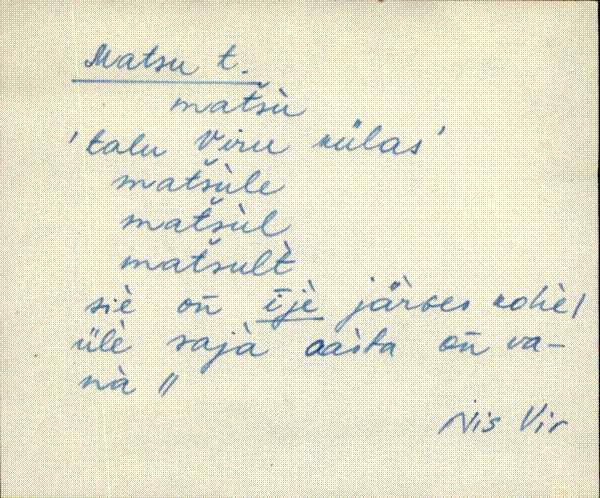 Matsu t.
matšù
'talu Viru külas'
matšùle
matšùl
matšult̀
siè on̄ ījè järves kohèl
ülè sajà aàsta on̄ va-
nà //
Jis Vir